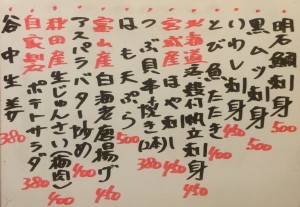 明石鯛刺身 500
黒ムツ刺身 500
いわし刺身 450
とび魚たたき 400
北海道活〆帆立刺身 450
宮城産ほや刺し 450
つぶ貝串焼き(2本) 380
はも天ぷら 500
富山産白海老唐揚げ 450
アスパラバター炒め 400
秋田産生じゅんさい(梅肉) 400
自家製ポテトサラダ 380
谷中生姜 380